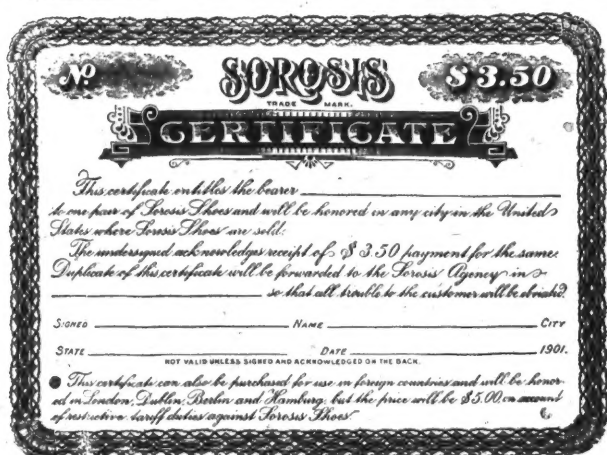 No
SOROSIS
$3.50
TRADE MARK.
CERTIFICATE
This certificate entitles the bearer
to one pair of Sorosis Shoes and will be honored in any city in the United
States where Sorosis Shoes are sold.
The undersigned acknowledges receipt of $3.50 payment for the same.
Duplicate of this certificate will be forwarded to the Sorosis Agency in
so that all trouble to the customer will be obviated.
SIGNED NAME CITY
STATE DATE 1901.
NOT VALID UNLESS SIGNED AND ACKNOWLEDGED ON THE BACK.
This certificate can also be purchased for use in foreign countries and will be honor-
ed in London, Dublin, Berlin and Hamburg, but the price will be $5.00, on account
of restrictive tariff duties against Sorosis Shoes.